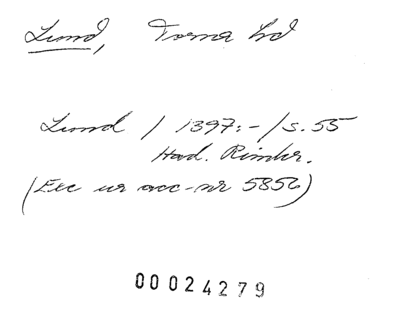 Lund, Torna hd
Lund / 1397:-/s. 55
Had. Rimkr.
(Exc ur acc-nr 5856)
00024279